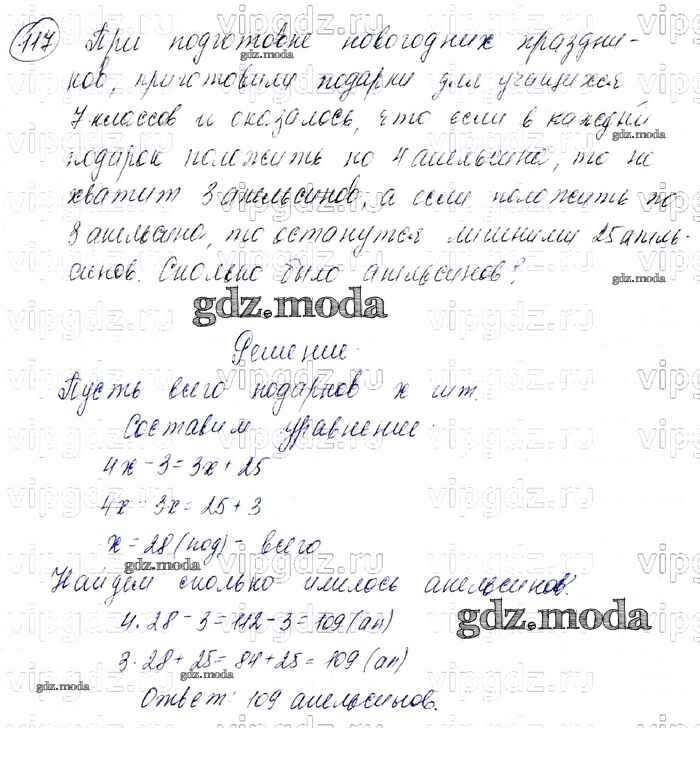 117 При подготовке новогодних праздни-
ков, приготовили подарки для учащихся
7 классов и оказалось, что если в каждый
подарок положить по 4 апельсина, то не
хватит 3 апельсинов, а если положить по
3 апельсина, то останутся лишними 25 апель-
синов. Сколько было апельсинов?
gdz.moda
Решение.
Пусть всего подарков x шт.
Составим уравнение:
4x - 3 = 3x + 25
4x - 3x = 25 + 3
x = 28 (под) - всего
Найдем сколько имелось апельсинов:
4 · 28 - 3 = 112 - 3 = 109 (ап)
gdz.moda
3 · 28 + 25 = 84 + 25 = 109 (ап)
Ответ: 109 апельсинов.